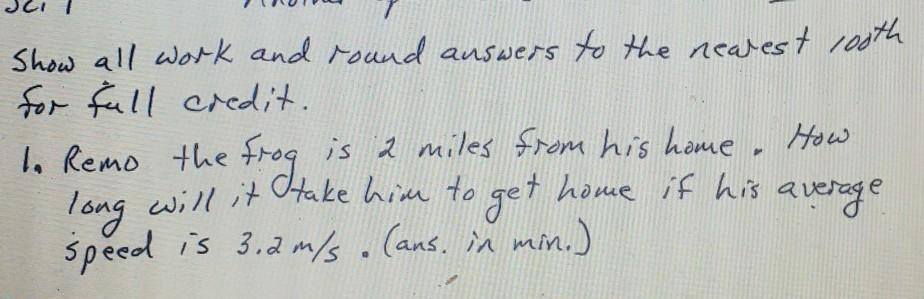 Show all work and round answers to the nearest 100th
for full credit.
1. Remo the frog is 2 miles from his home. How
long will it take him to get home if his average
speed is 3.2 m/s. (ans. in min.)